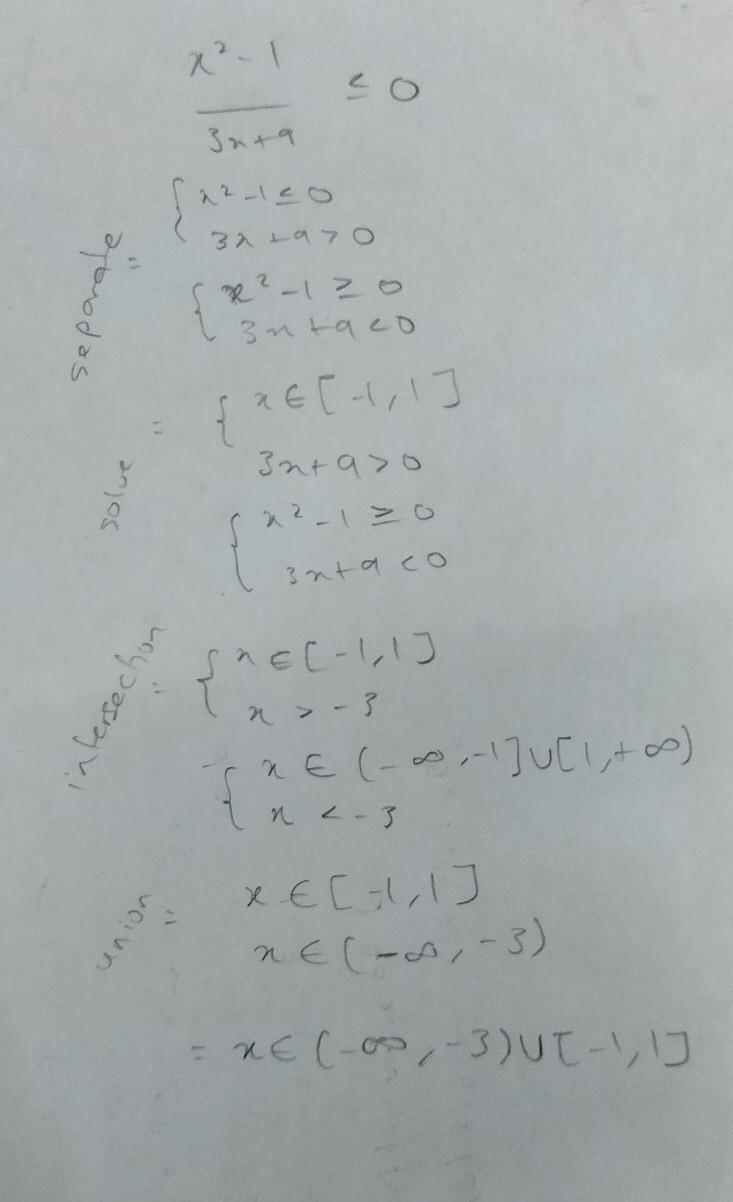 x² - 1
3x+9 ≤ 0
separate = { x² - 1 ≤ 0
3x + 9 > 0
{ x² - 1 ≥ 0
3x + 9 < 0
solve = { x ∈ [-1, 1]
3x + 9 > 0
{ x² - 1 ≥ 0
3x + 9 < 0
intersection = { x ∈ [-1, 1]
x > -3
{ x ∈ (-∞, -1] ∪ [1, +∞)
x < -3
union = x ∈ [-1, 1]
x ∈ (-∞, -3)
= x ∈ (-∞, -3) ∪ [-1, 1]